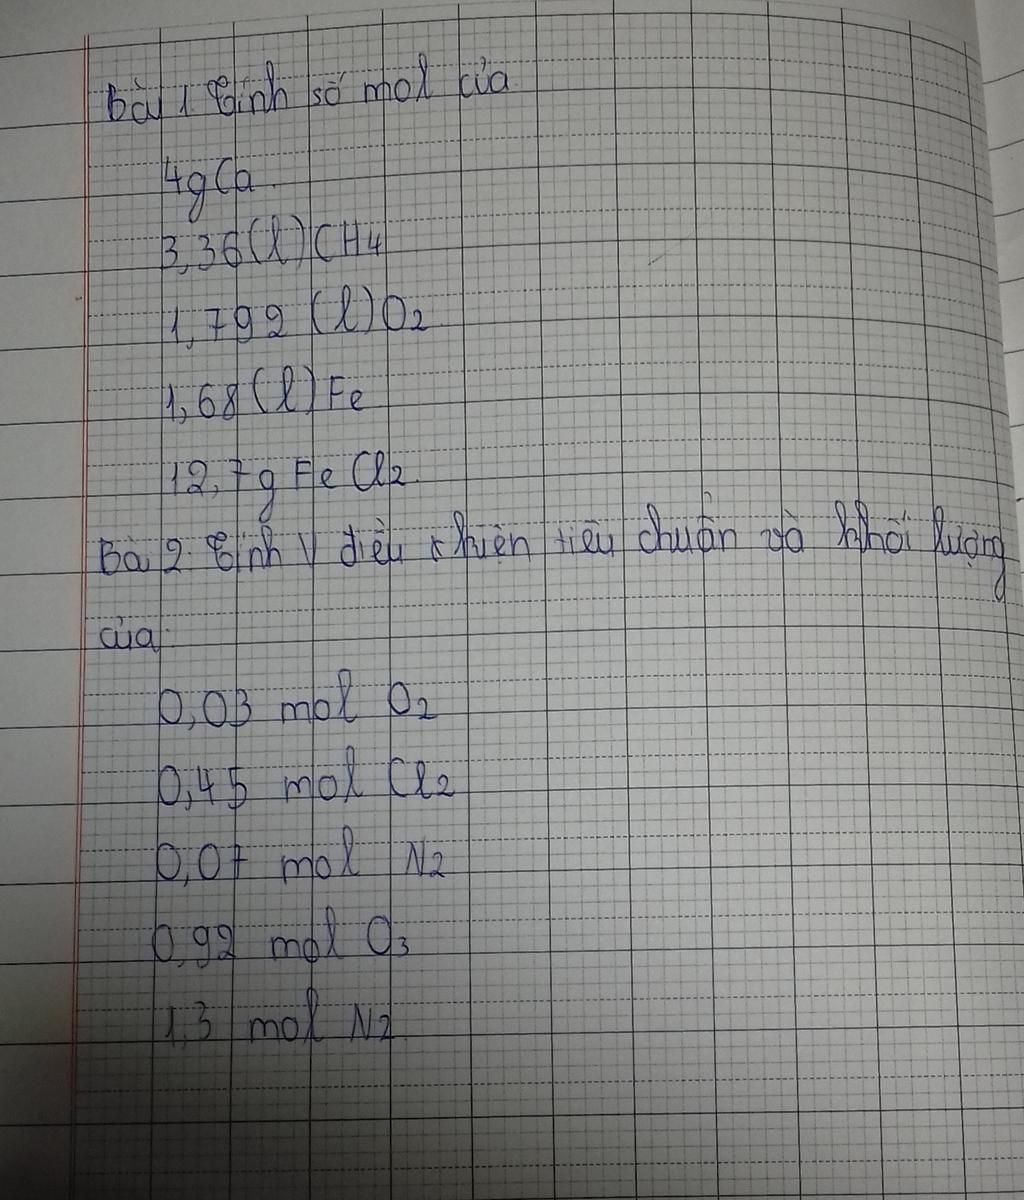 Bài 1 tính số mol của
4g Ca
3,36 (l) CH4
1,792 (l) O2
1,68 (l) Fe
12,7g FeCl2
Bài 2 tính V điều khiện tiêu chuẩn và khối lượng
của
0,03 mol O2
0,45 mol Cl2
0,07 mol N2
0,92 mol O3
1,3 mol N2